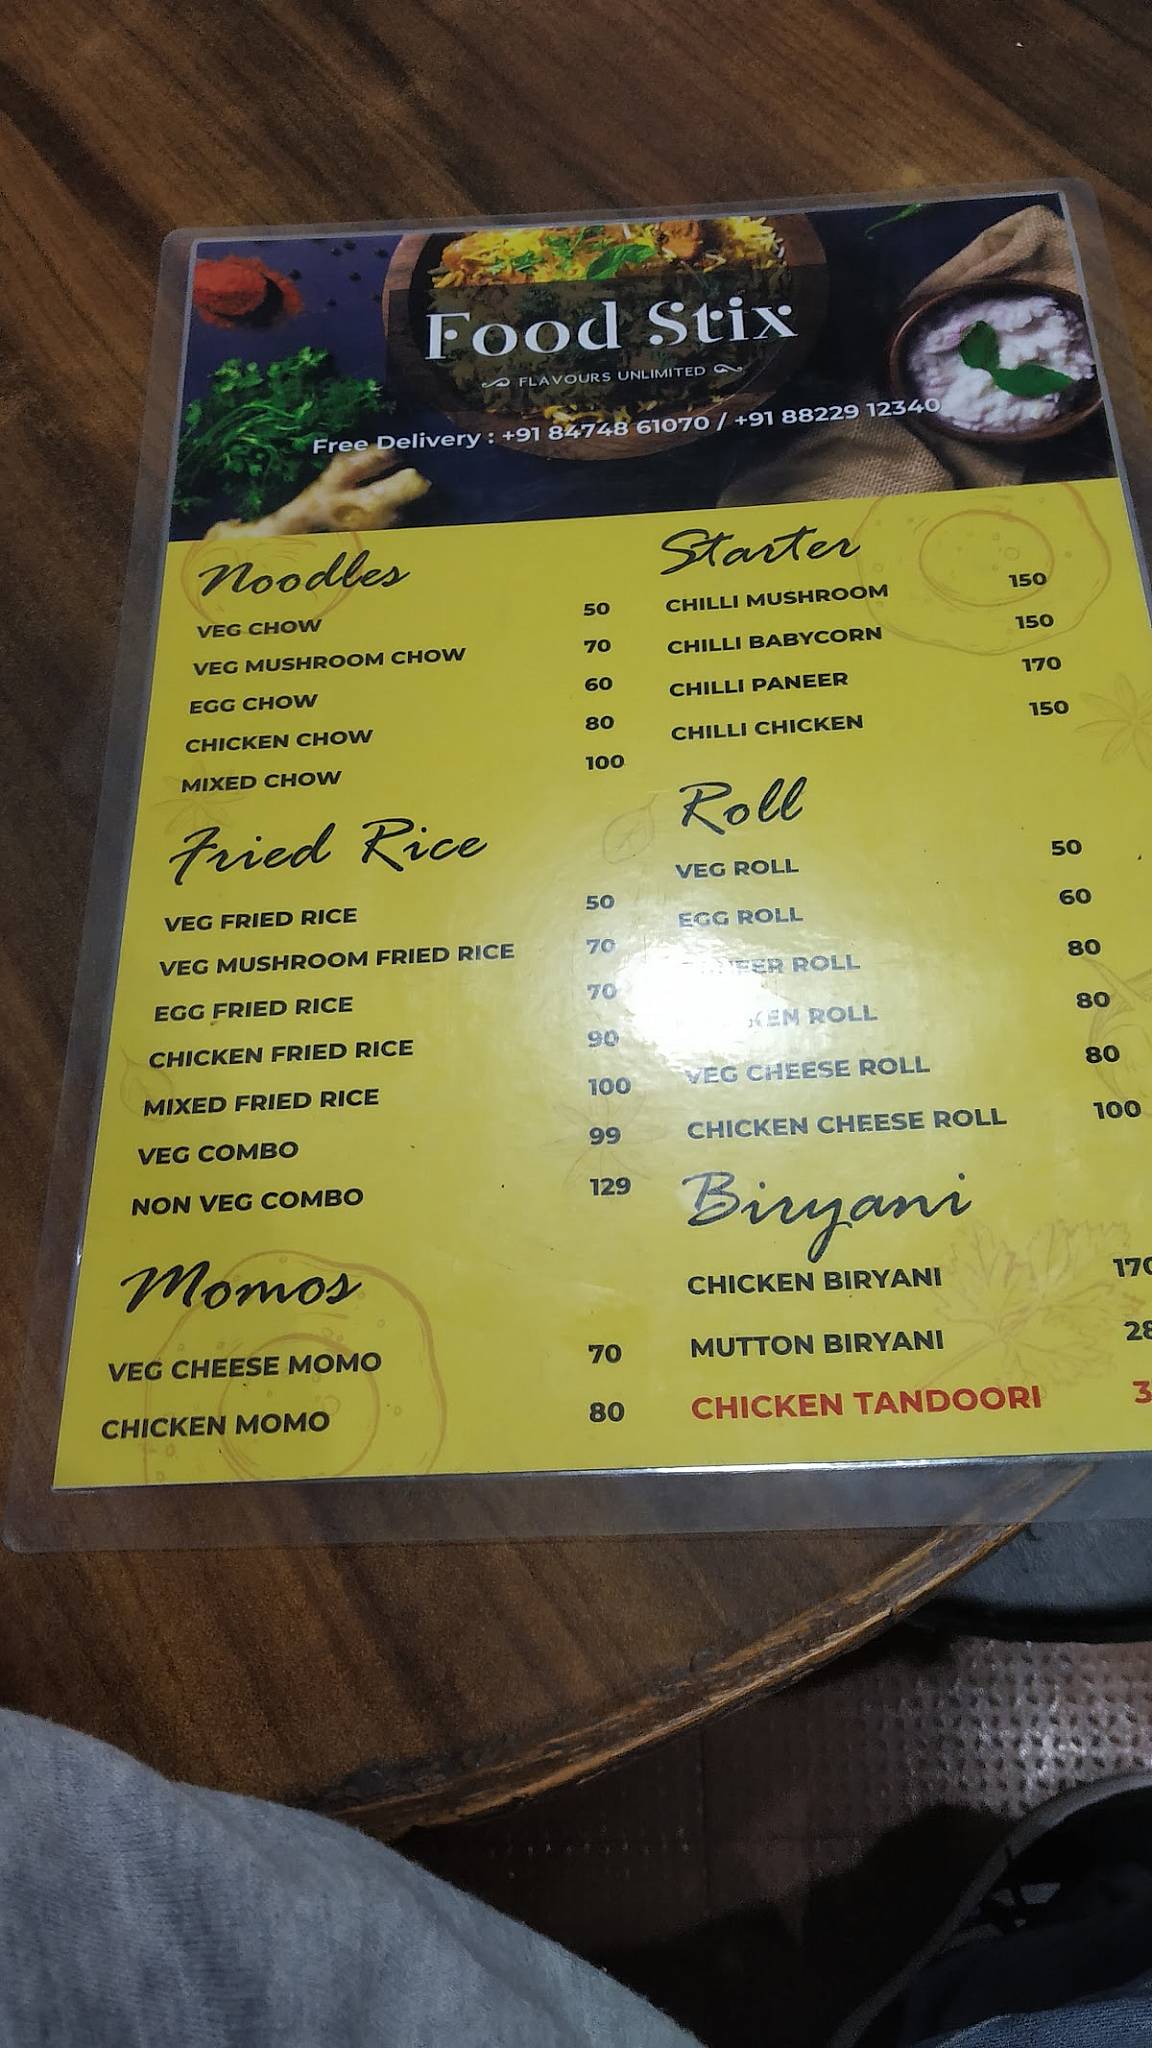 Food Stix
FLAVOURS UNLIMITED
Free Delivery : +91 84748 61070 / +91 88229 12340
Noodles
VEG CHOW 50
VEG MUSHROOM CHOW 70
EGG CHOW 60
CHICKEN CHOW 80
MIXED CHOW 100
Fried Rice
VEG FRIED RICE 50
VEG MUSHROOM FRIED RICE 70
EGG FRIED RICE 70
CHICKEN FRIED RICE 90
MIXED FRIED RICE 100
VEG COMBO 99
NON VEG COMBO 129
Momos
VEG CHEESE MOMO 70
CHICKEN MOMO 80
Starter
CHILLI MUSHROOM 150
CHILLI BABYCORN 150
CHILLI PANEER 170
CHILLI CHICKEN 150
Roll
VEG ROLL 50
EGG ROLL 60
ROLL 80
ROLL 80
VEG CHEESE ROLL 80
CHICKEN CHEESE ROLL 100
Biryani
CHICKEN BIRYANI 170
MUTTON BIRYANI
CHICKEN TANDOORI